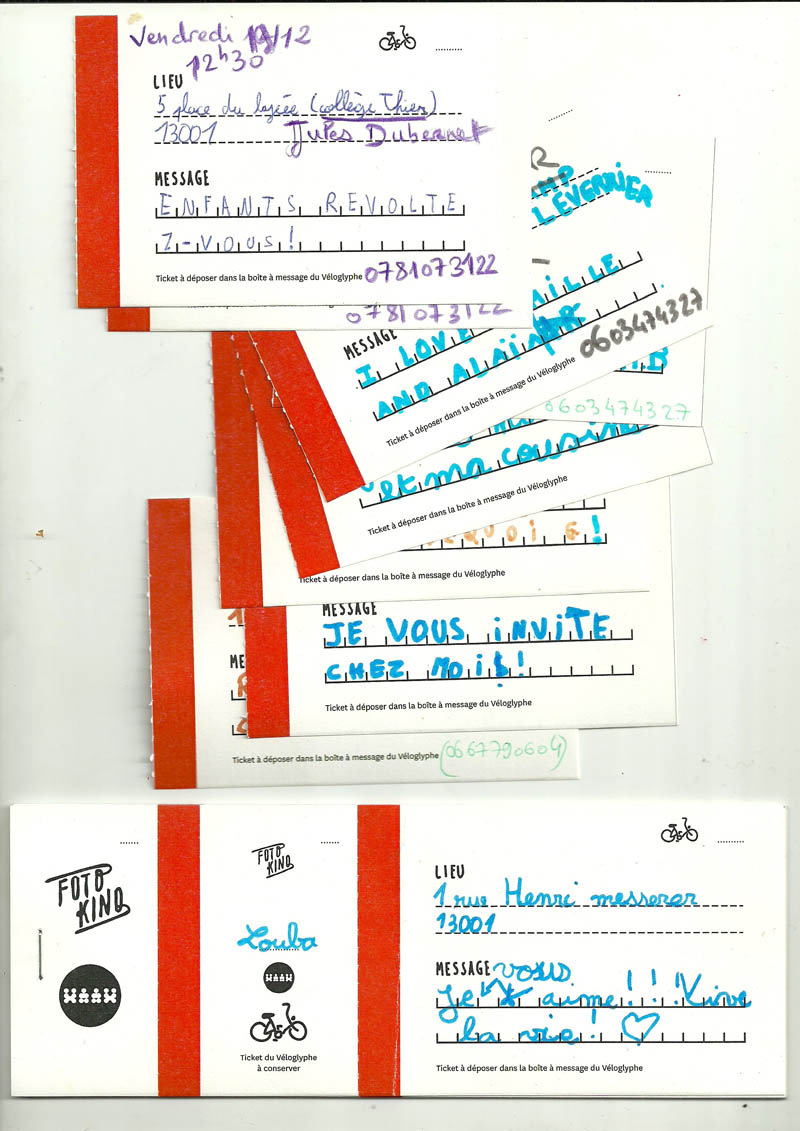 Vendredi 19/12
12h30
LIEU
5 place du lycée (collège Thiers)
13001 Jules Dubernet
MESSAGE
ENFANTS REVOLTE
Z-VOUS!
Ticket à déposer dans la boîte à message du Véloglyphe 0781073122
0781073122
LEVERRIER
MESSAGE
I LOVE
AILLE
AND
Ticket à déposer dans la boîte à message du Véloglyphe 0603474327
0603474327
et ma cousine
Ticket à déposer dans la boîte à message du Véloglyphe
QUOI
Ticket à déposer dans la boîte à message du Véloglyphe
MESSAGE
JE VOUS iNViTE
CHEZ MOi !
Ticket à déposer dans la boîte à message du Véloglyphe
ME
Ticket à déposer dans la boîte à message du Véloglyphe (0667790604)
FOTO
KINO
FOTO
KINO
Louba
Ticket du Véloglyphe
à conserver
LIEU
1 rue Henri messerer
13001
MESSAGE vous
Je aime!!! Vive
la vie! ♡
Ticket à déposer dans la boîte à message du Véloglyphe